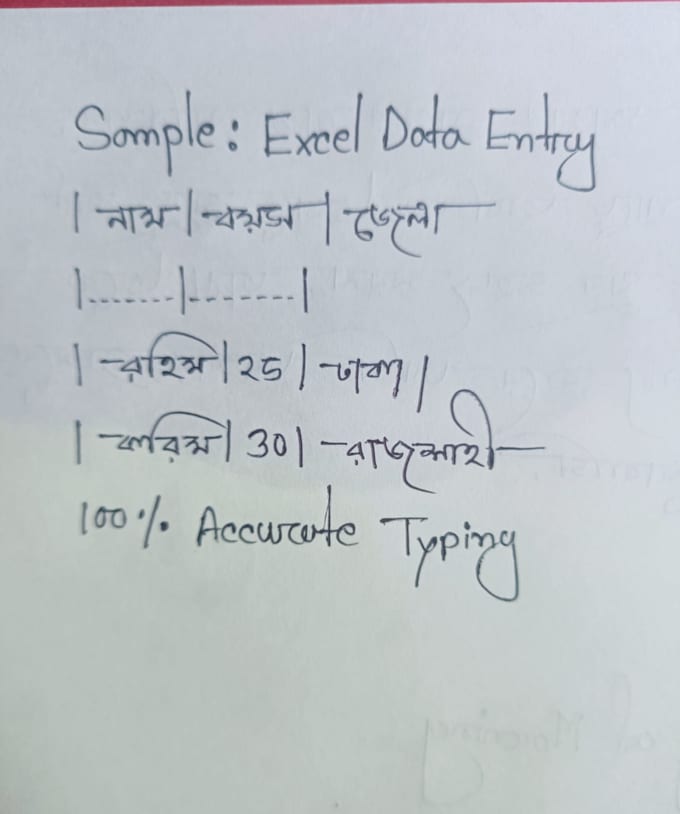 Sample: Excel Data Entry
| নাম | বয়স | জেলা
|.......|.......|
| রহিম | ২৫ | ঢাকা |
| করিম | 30 | রাজশাহী
100% Accurate Typing